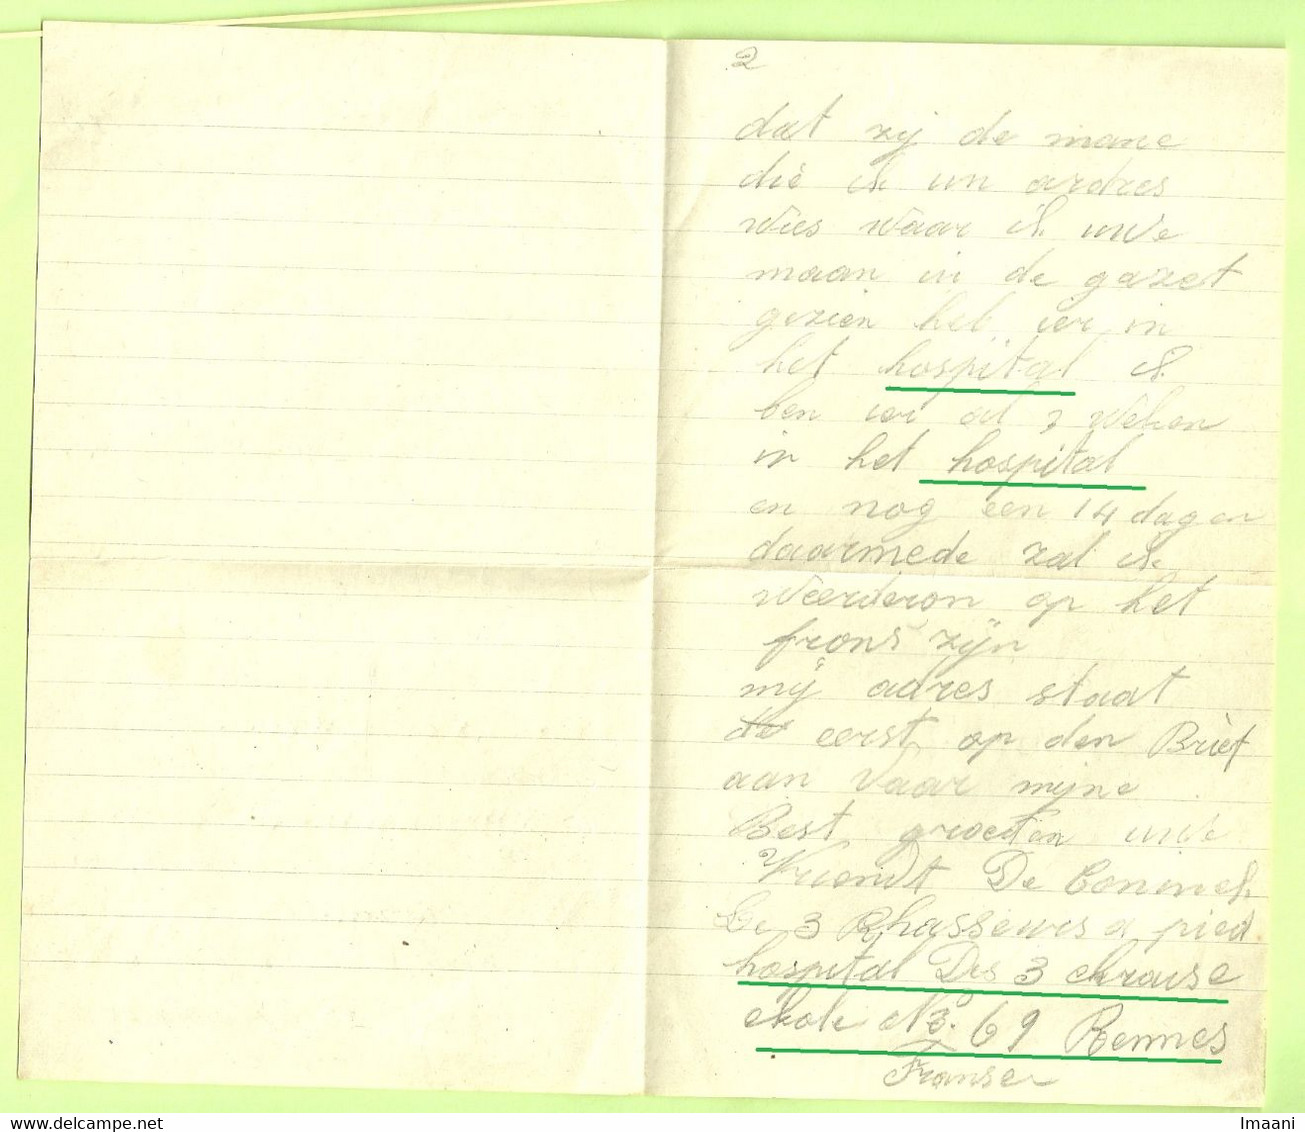 2
dat zij de mane
die ik un ardres
wies waar ik uwe
maan in de gazet
gezien heb ier in
het hospital ik
ben ier al 3 weken
in het hospital
en nog een 14 dagen
daarmede zal ik
weerderon op het
frons zijn
mij adres staat
eerst op den Brief
aan vaar mijne
Best groeten uwe
Vriendt De Coninck
3 Chasseurs a pied
hospital Des 3 chrouse
ekole No 69 Rennes
Franser
Imaani